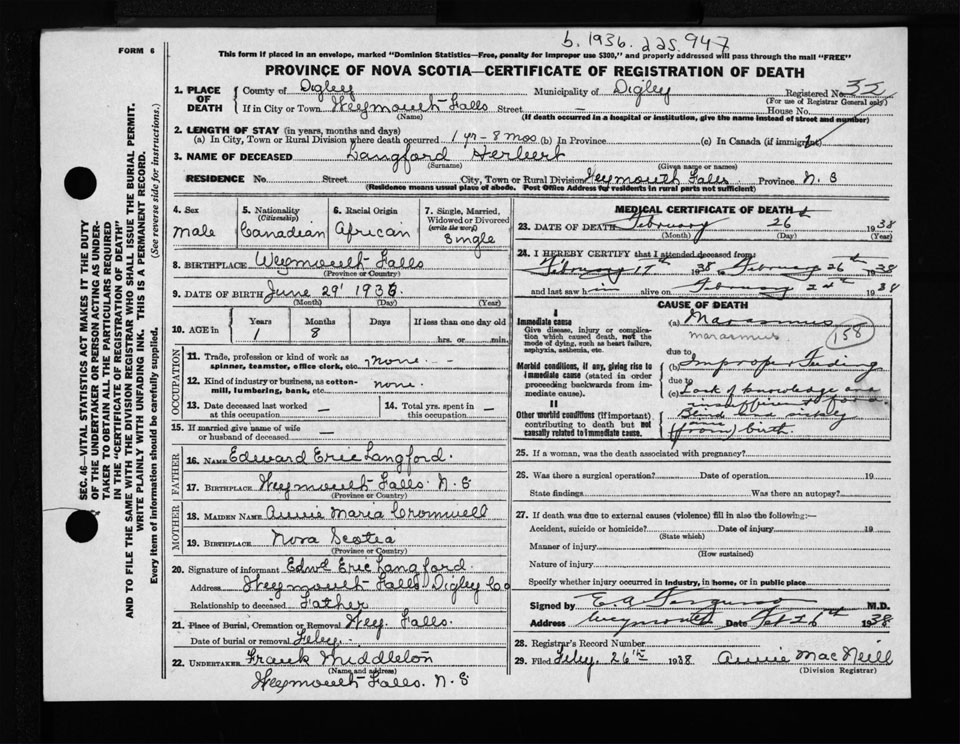 b. 1936. 225. 947
FORM 6
This form if placed in an envelope, marked "Dominion Statistics—Free, penalty for improper use $300," and properly addressed will pass through the mail "FREE"
PROVINCE OF NOVA SCOTIA—CERTIFICATE OF REGISTRATION OF DEATH
1. PLACE OF DEATH
County of Digby Municipality of Digby Registered No. 32
(For use of Registrar General only)
If in City or Town Weymouth Falls Street — House No.
(Name) (If death occurred in a hospital or institution, give the name instead of street and number)
2. LENGTH OF STAY (in years, months and days)
(a) In City, Town or Rural Division where death occurred 1 yr - 8 mos (b) In Province (c) In Canada (if immigrant)
3. NAME OF DECEASED Langford Herbert
(Surname) (Given name or names)
RESIDENCE No. Street City, Town or Rural Division Weymouth Falls Province N. S
(Residence means usual place of abode. Post Office Address for residents in rural parts not sufficient)
4. Sex
male
5. Nationality
(Citizenship)
Canadian
6. Racial Origin
African
7. Single, Married, Widowed or Divorced
(write the word)
Single
8. BIRTHPLACE Weymouth Falls
(Province or Country)
9. DATE OF BIRTH June 29' 1936
(Month) (Day) (Year)
10. AGE in
Years Months Days If less than one day old
1 8 hrs. or min.
OCCUPATION
11. Trade, profession or kind of work as spinner, teamster, office clerk, etc. none. -
12. Kind of industry or business, as cotton-mill, lumbering, bank, etc. none.
13. Date deceased last worked at this occupation —
14. Total yrs. spent in this occupation —
15. If married give name of wife or husband of deceased —
FATHER
16. NAME Edward Eric Langford.
17. BIRTHPLACE Weymouth Falls. N. S
(Province or Country)
MOTHER
18. MAIDEN NAME Annie Maria Cromwell
19. BIRTHPLACE Nova Scotia
(Province or Country)
20. Signature of informant Edwd Eric Langford.
Address Weymouth Falls Digby Co
Relationship to deceased Father
21. Place of Burial, Cremation or Removal Wey. Falls.
Date of burial or removal Feby. -
22. UNDERTAKER Frank Middleton
(Name and address)
Weymouth Falls. N. S
MEDICAL CERTIFICATE OF DEATH
23. DATE OF DEATH February 26th 1938
(Month) (Day) (Year)
24. I HEREBY CERTIFY that I attended deceased from
February 17th 1938 to February 26th 1938
and last saw him alive on February 24th 1938
CAUSE OF DEATH
I
Immediate cause
Give disease, injury or complication which caused death, not the mode of dying, such as heart failure, asphyxia, asthenia, etc.
(a) Marasmus
marasmus 158
Morbid conditions, if any, giving rise to immediate cause (stated in order proceeding backwards from immediate cause).
due to
(b) Improper Feeding
due to
(c) Lack of knowledge and
II
Other morbid conditions (if important) contributing to death but not causally related to immediate cause.
Blind
(from) birth.
25. If a woman, was the death associated with pregnancy?
26. Was there a surgical operation? Date of operation 19
State findings Was there an autopsy?
27. If death was due to external causes (violence) fill in also the following:—
Accident, suicide or homicide? Date of injury 19
(State which)
Manner of injury
(How sustained)
Nature of injury
Specify whether injury occurred in industry, in home, or in public place
Signed by E. A. Ferguson M.D.
Address Weymouth Date Feb 26th 1938
28. Registrar's Record Number
29. Filed Feby. 26th 1938 Annie MacNeill
(Division Registrar)
SEC. 46—VITAL STATISTICS ACT MAKES IT THE DUTY
OF THE UNDERTAKER OR PERSON ACTING AS UNDER-
TAKER TO OBTAIN ALL THE PARTICULARS REQUIRED
IN THE "CERTIFICATE OF REGISTRATION OF DEATH"
AND TO FILE THE SAME WITH THE DIVISION REGISTRAR WHO SHALL ISSUE THE BURIAL PERMIT.
WRITE PLAINLY WITH UNFADING INK. THIS IS A PERMANENT RECORD.
Every item of information should be carefully supplied. (See reverse side for instructions.)